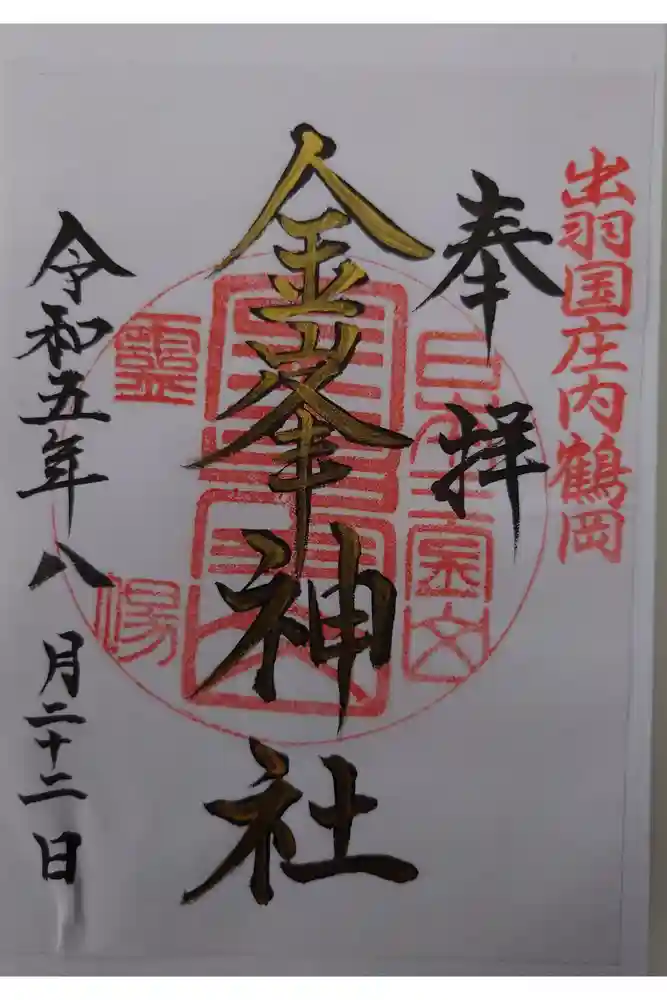 出羽国庄内鶴岡
奉拝
金峯神社
令和五年八月二十二日
日本三
霊